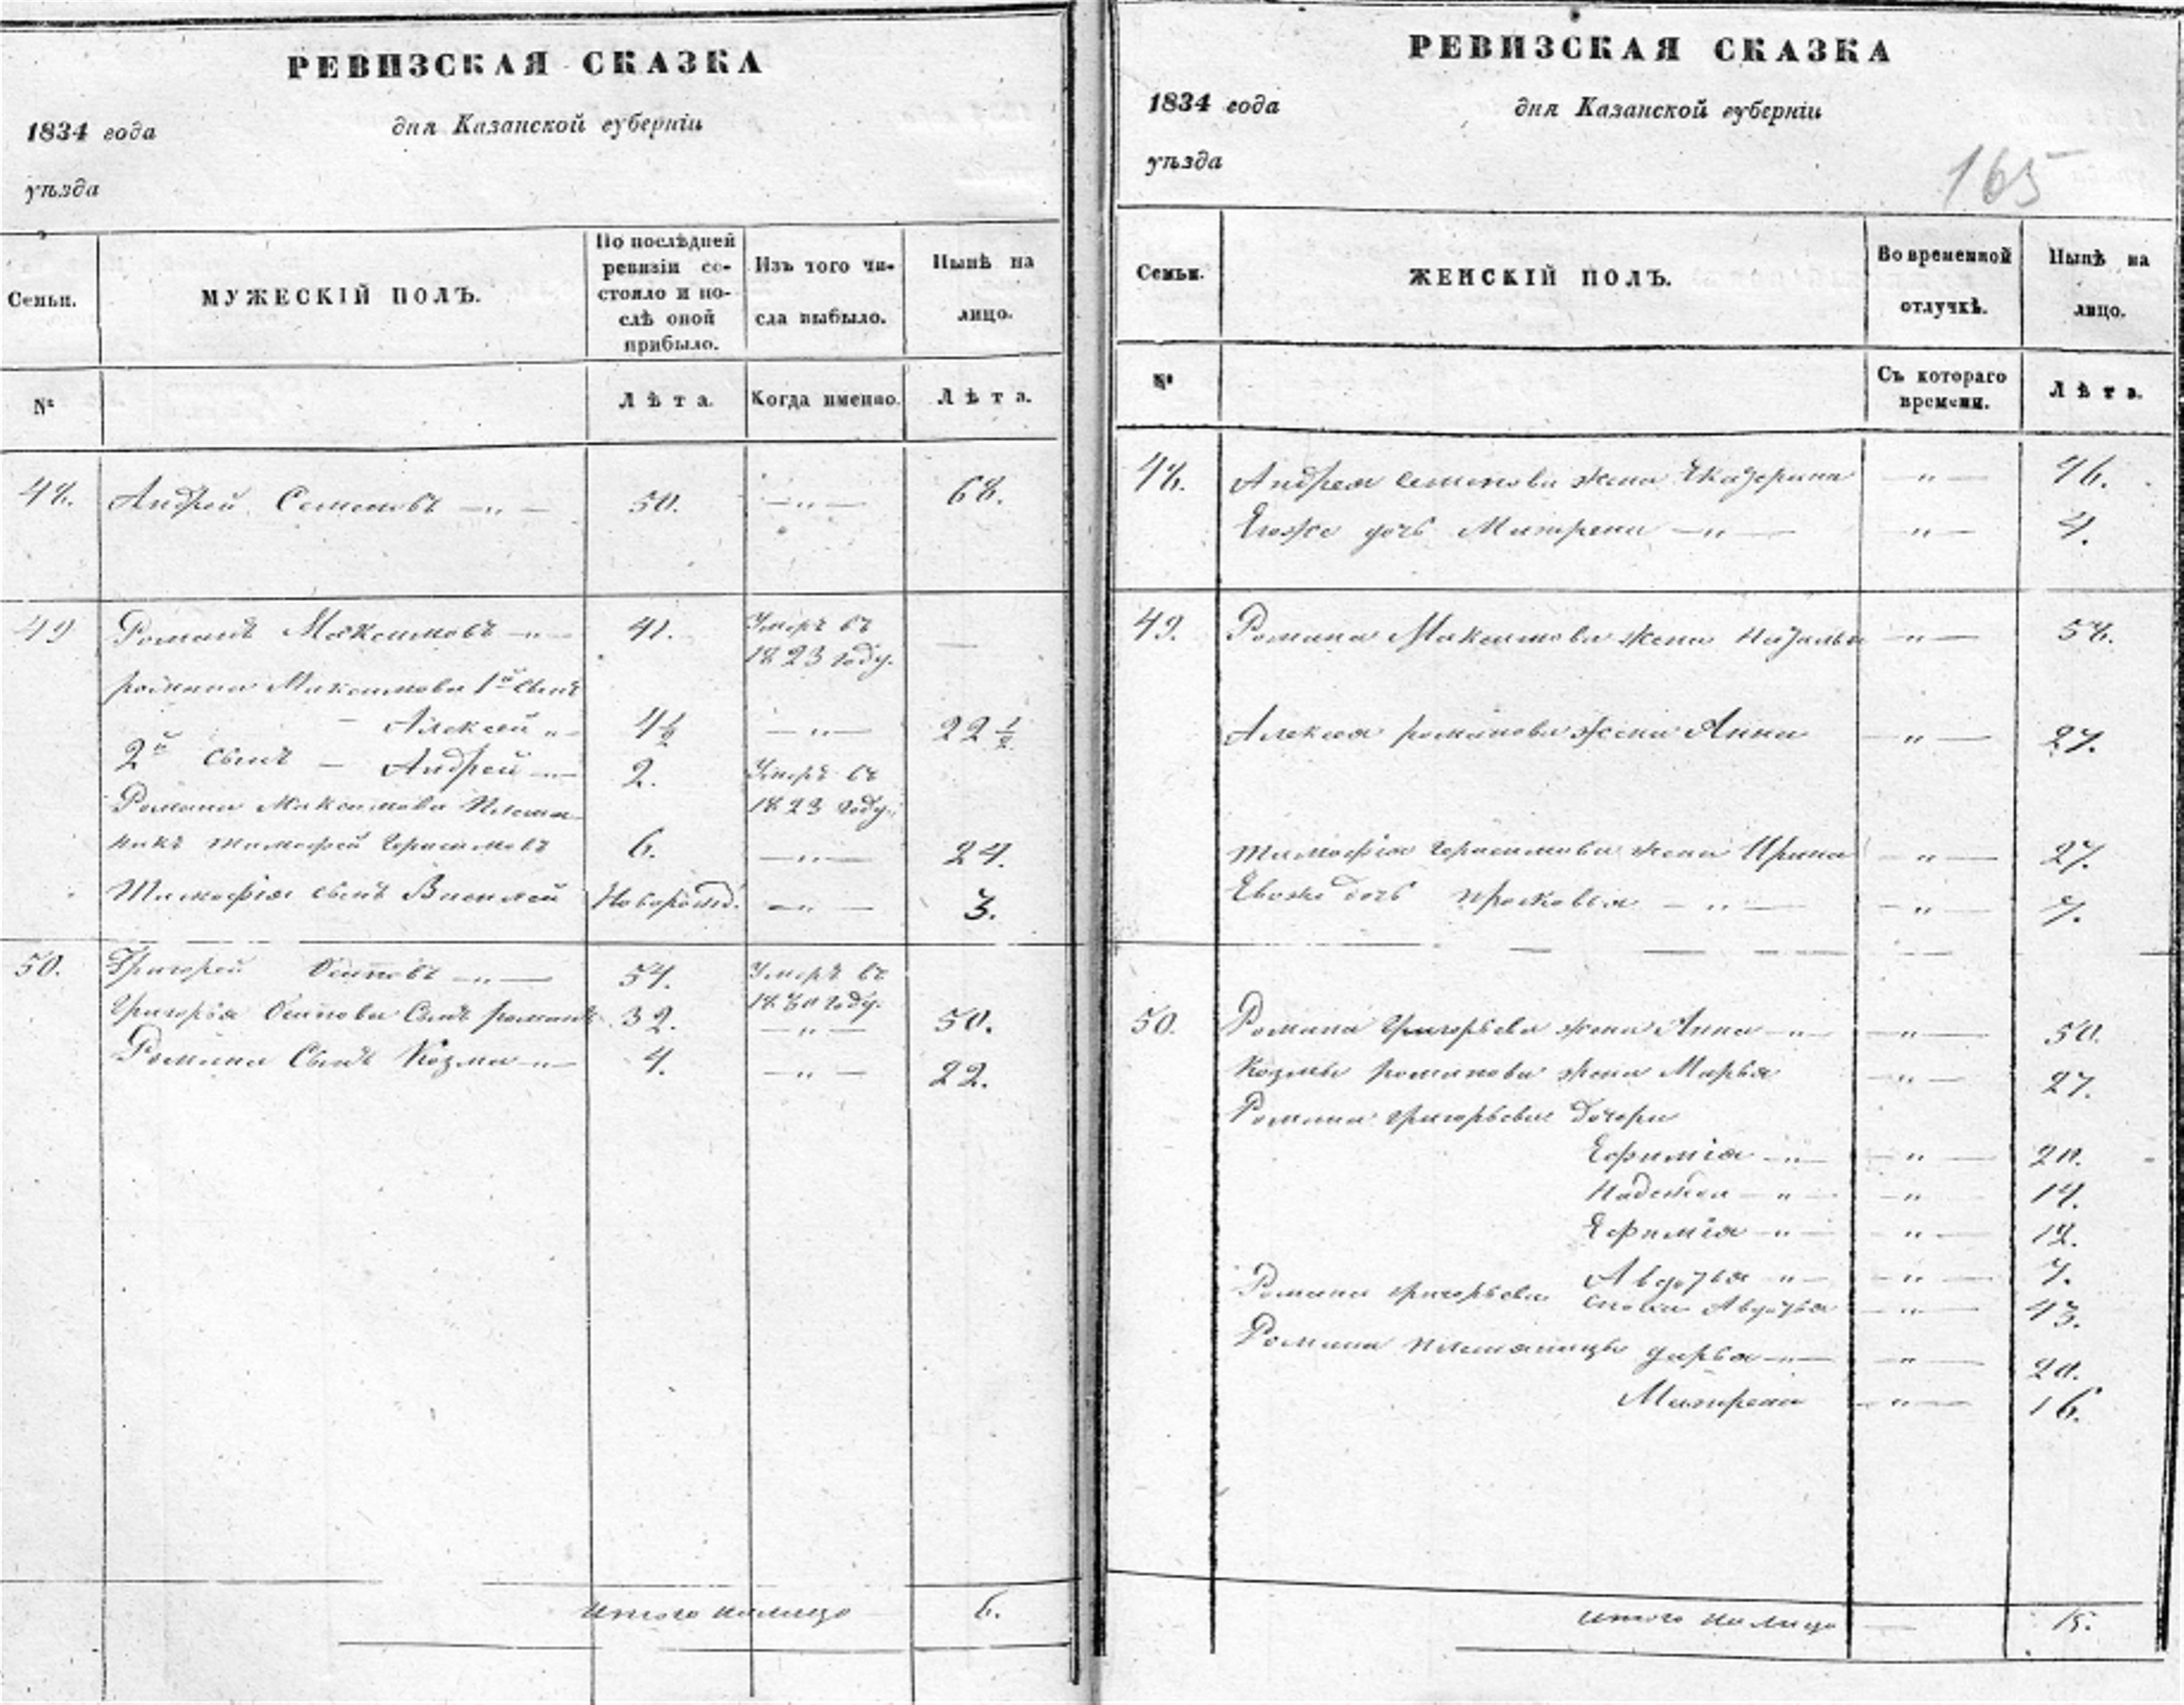 РЕВИЗСКАЯ СКАЗКА
1834 года дня Казанской губерніи
уѣзда
Семьи. МУЖЕСКІЙ ПОЛЪ. По послѣдней ревизіи состояло и послѣ оной прибыло. Изъ того числа выбыло. Нынѣ на лицо.
№ Лѣта. Когда именно. Лѣта.
48. Андрей Семеновъ —„— 50. —„— 68.
49 Романъ Максимовъ —„— 41. Умеръ въ —
1823 году.
романа Максимова 1й сынъ
— Алексей „— 4½ —„— 22½
2й сынъ — Андрей —„— 2. Умеръ въ
Романа Максимова Племя- 1823 году.
никъ тимофей Герасимовъ 6. —„— 24.
Тимофѣя сынъ Василей Новорожд. —„— 3.
50. Григорей Осиповъ —„— 57. Умеръ въ
1830 году.
Григорья Осипова Сынъ романъ 32. —„— 50.
Романа Сынъ Козма —„— 4. —„— 22.
итого налицо 6.
РЕВИЗСКАЯ СКАЗКА
1834 года дня Казанской губерніи
уѣзда
165
Семьи. ЖЕНСКІЙ ПОЛЪ. Во временной отлучкѣ. Нынѣ на лицо.
№ Съ котораго времени. Лѣта.
48. Андрея семенова жена Екатерина —„— 46.
Егоже дочь Матрена —„— —„— 4.
49. Романа Максимова жена Наталья —„— 58.
Алексея романова жена Анна —„— 27.
тимофѣя герасимова жена Ирина —„— 27.
Евоже дочь прасковья —„— —„— 7.
50. Романа Григорьева жена Анна —„— —„— 50.
Козмы романова жена Марья —„— 27.
Романа григорьева дочери
Ефимія —„— —„— 20.
Надежда —„— —„— 17.
Ефимія —„— —„— 12.
Авдотья —„— —„— 7.
Романа григорьева сноха Авдотья —„— 43.
Романа племяницы дарья —„— —„— 20.
Матрена —„— 16.
итого на лицо — 15.